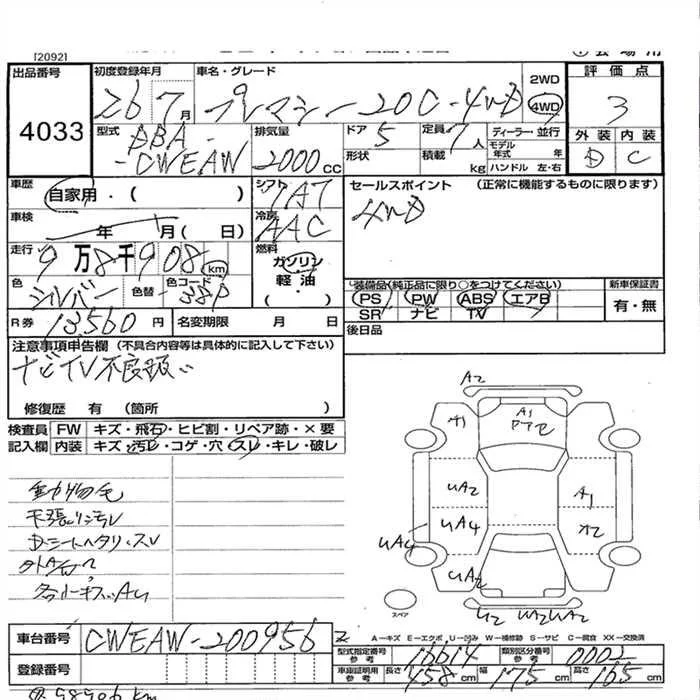 [20921
出品番号 初度登録年月 車名・グレード 2WD 評価点
4033 26 7月 プレマシー 20C-4WD 4WD 3
型式 DBA- CWEAW 排気量 2000cc ドア 5 定員 7人 ディーラー・並行 外装 内装
形状 積載 kg モデル年式 年 ハンドル 左・右 D C
車歴 自家用・( ) シフト 7AT セールスポイント (正常に機能するものに限ります)
車検 年 月(日) 冷房 AAC 4WD
走行 9万8千908 km 燃料 ガソリン 軽油・( )
色 シルバー 色替 色コード 38P
装備品(純正品に限り○をつけてください) 新車保証書
PS PW ABS エアB 有・無
SR ナビ TV
R券 13,560円 名変期限 月 日 後日品
注意事項申告欄 (不具合内容等は具体的に記入して下さい)
ナビTV不良扱い
修復歴 有 (箇所 )
検査員 FW キズ・飛石・ヒビ割・リペア跡・×要
記入欄 内装 キズ・汚レ・コゲ・穴・スレ・キレ・破レ
動物毛
天張リ汚レ
Dシートヘタリ、スレ
A2
A1
A1
UA2
A1
UA4
A2
UA4
UA2
U2
UA2 UA2
スペア
A-キズ E-エクボ U-凹み W-補修跡 S-サビ C-腐食 XX-交換済
車台番号 CWEAW-200956
型式指定番号 参考 16614 類別区分番号 参考 0002
登録番号
車庫証明用 参考 長さ 458cm 幅 175cm 高さ 165cm
98906 km